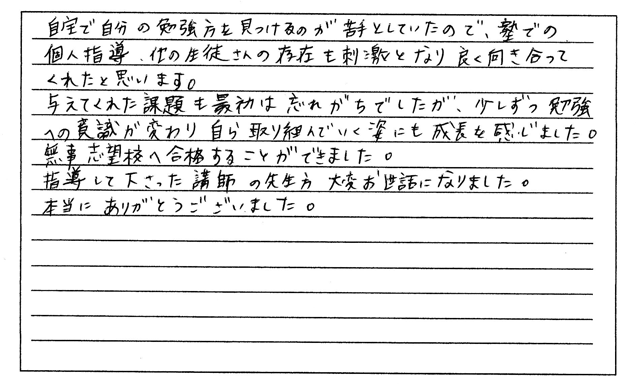 自宅で自分の勉強方を見つけるのが苦手としていたので、塾での
個人指導、他の生徒さんの存在も刺激となり良く向き合って
くれたと思います。
与えてくれた課題も最初は忘れがちでしたが、少しずつ勉強
への意識が変わり自ら取り組んでいく姿にも成長を感じました。
無事志望校へ合格することができました。
指導して下さった講師の先生方大変お世話になりました。
本当にありがとうございました。